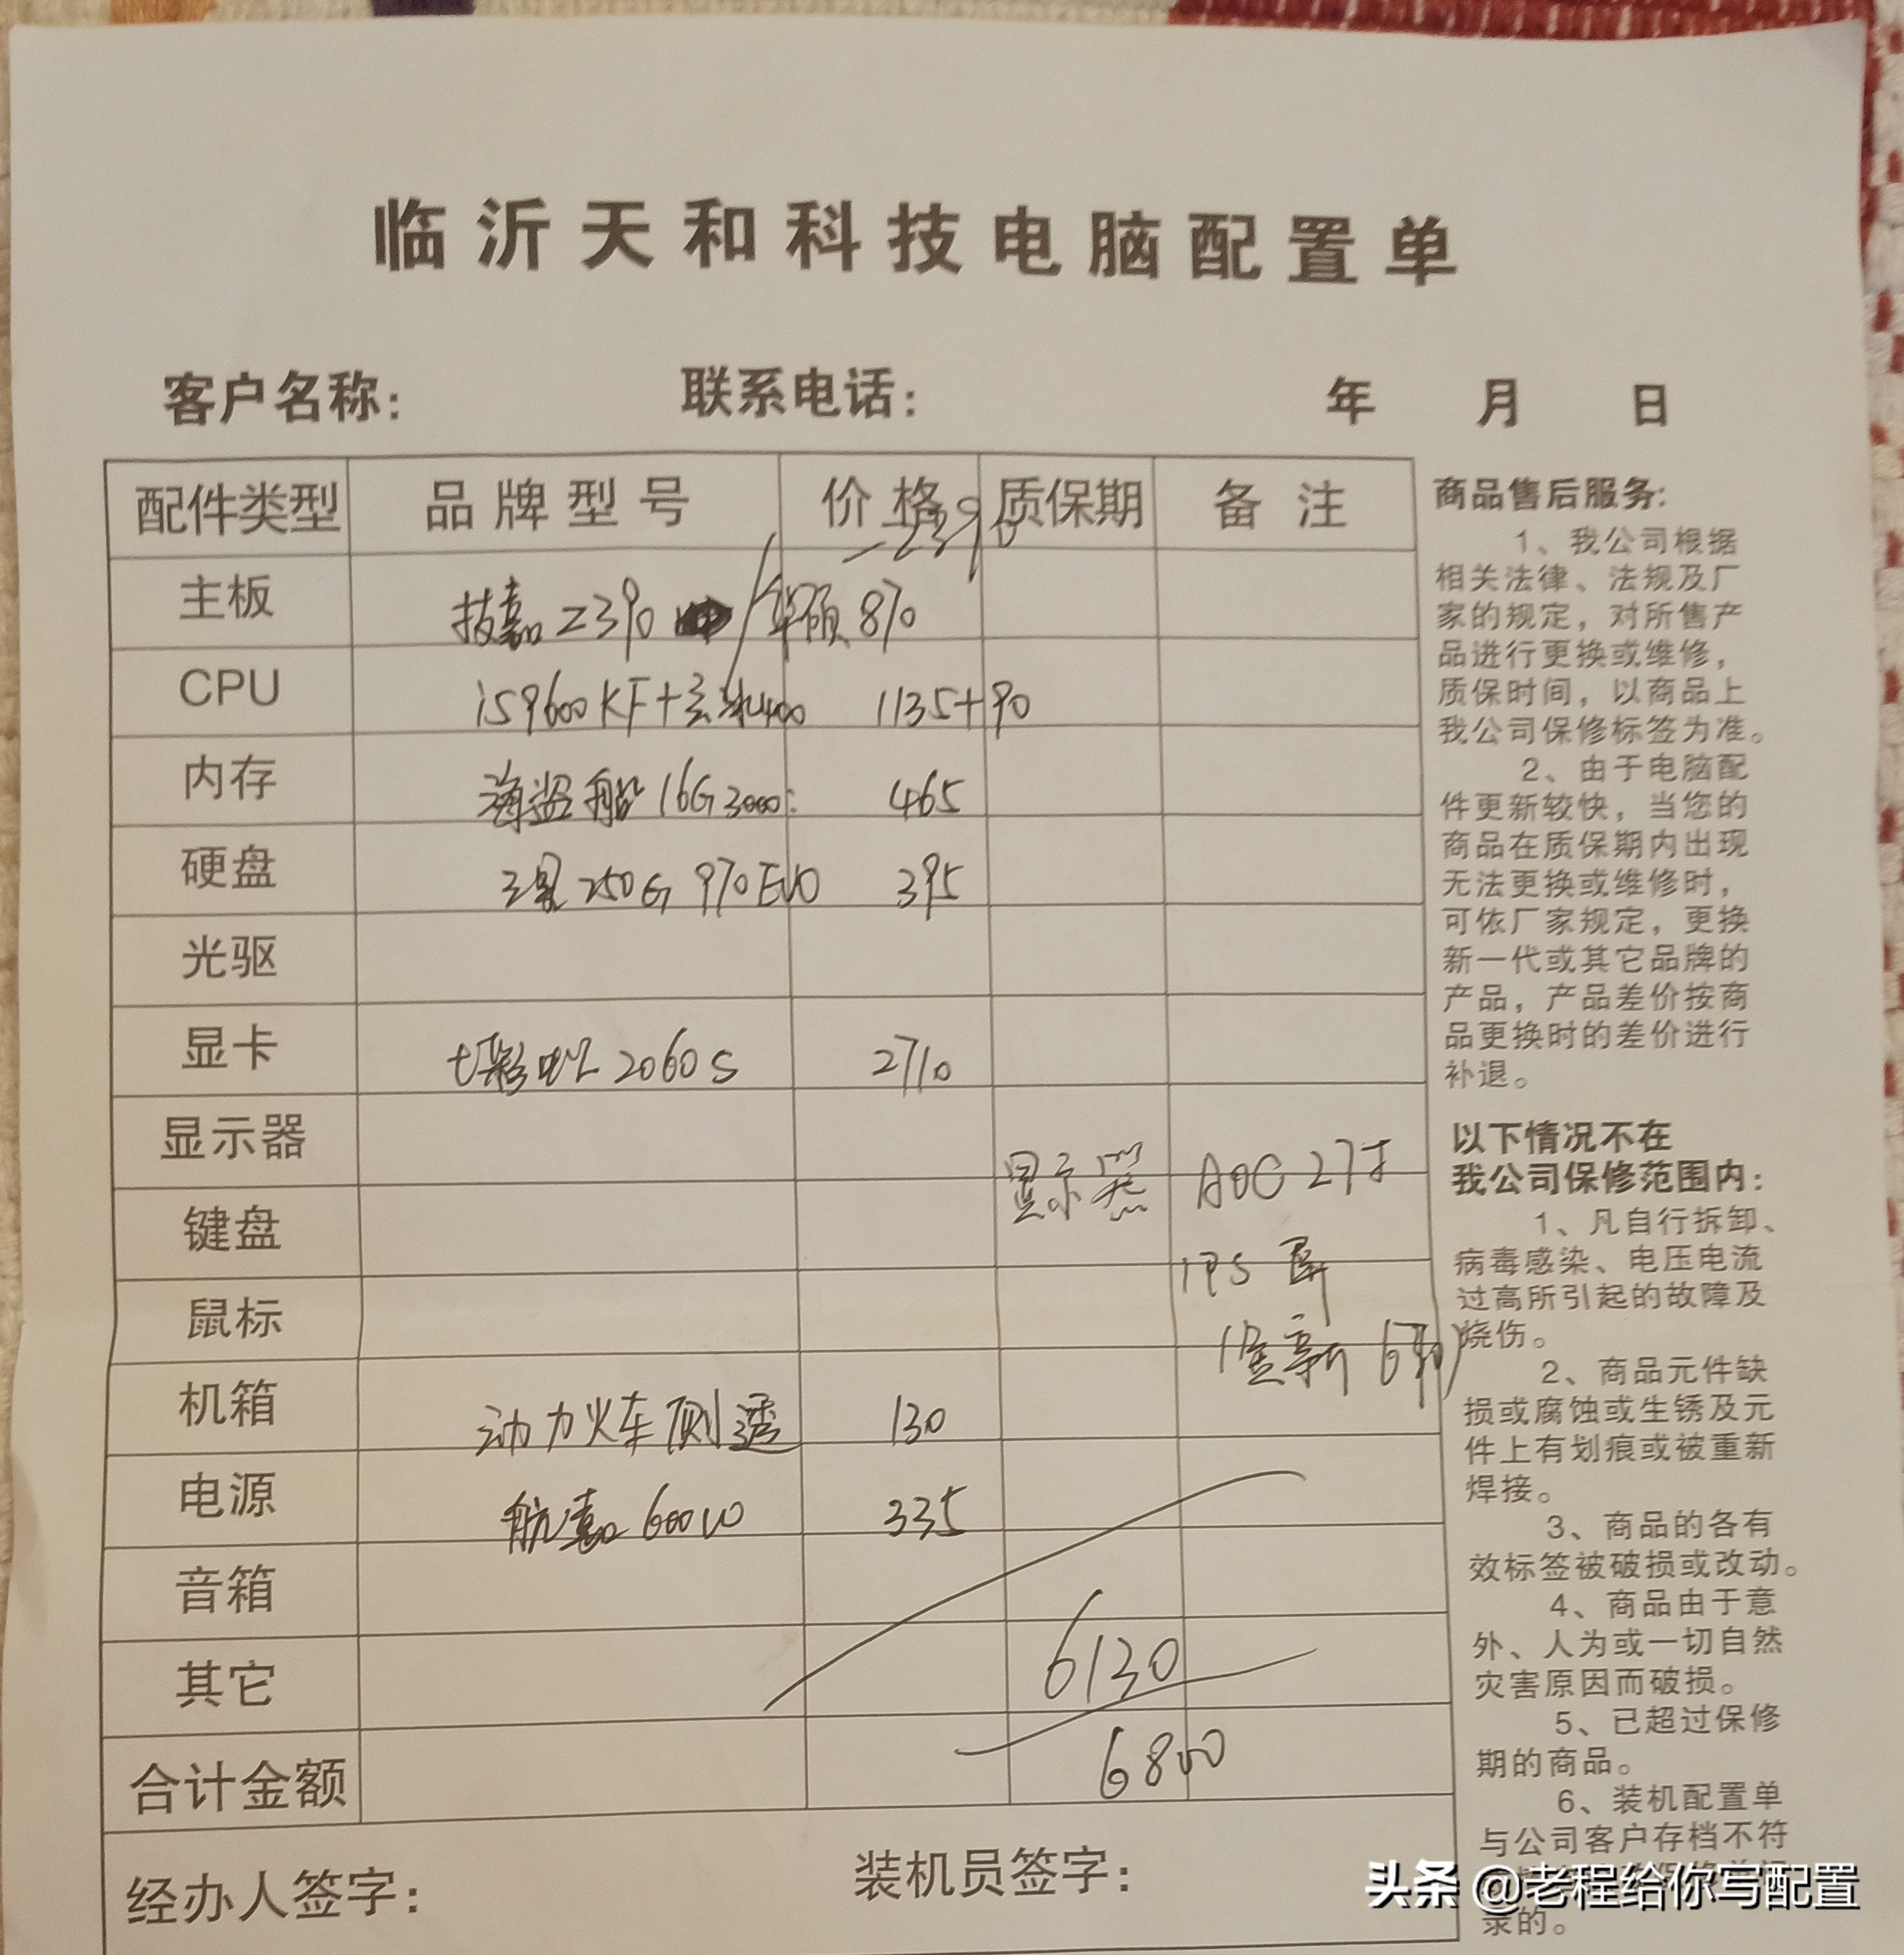 临沂天和科技电脑配置单
客户名称: 联系电话: 年 月 日
配件类型 品牌型号 价格 质保期 备注
主板 技嘉Z390 / 华硕 870
CPU i59600KF+玄冰400 1135+90
内存 海盗船16G3000 465
硬盘 三星250G 970EVO 395
光驱
显卡 七彩虹 2060S 2710
显示器
显示器 AOC 27寸
键盘
IPS 屏
鼠标
全新
机箱 动力火车侧透 130
电源 航嘉600W 335
音箱
其它 6130
合计金额 6800
经办人签字: 装机员签字:
商品售后服务:
1、我公司根据
相关法律、法规及厂
家的规定,对所售产
品进行更换或维修,
质保时间,以商品上
我公司保修标签为准。
2、由于电脑配
件更新较快,当您的
商品在质保期内出现
无法更换或维修时,
可依厂家规定,更换
新一代或其它品牌的
产品,产品差价按商
品更换时的差价进行
补退。
以下情况不在
我公司保修范围内:
1、凡自行拆卸、
病毒感染、电压电流
过高所引起的故障及
烧伤。
2、商品元件缺
损或腐蚀或生锈及元
件上有划痕或被重新
焊接。
3、商品的各有
效标签被破损或改动。
4、商品由于意
外、人为或一切自然
灾害原因而破损。
5、已超过保修
期的商品。
6、装机配置单
与公司客户存档不符
录的。
头条 @老程给你写配置